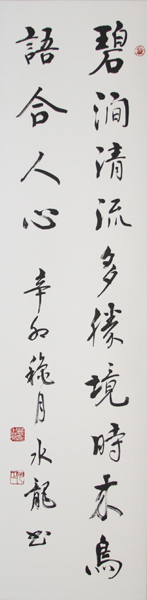 碧澗清流多勝境時來鳥
語合人心 辛卯穐月水龍书